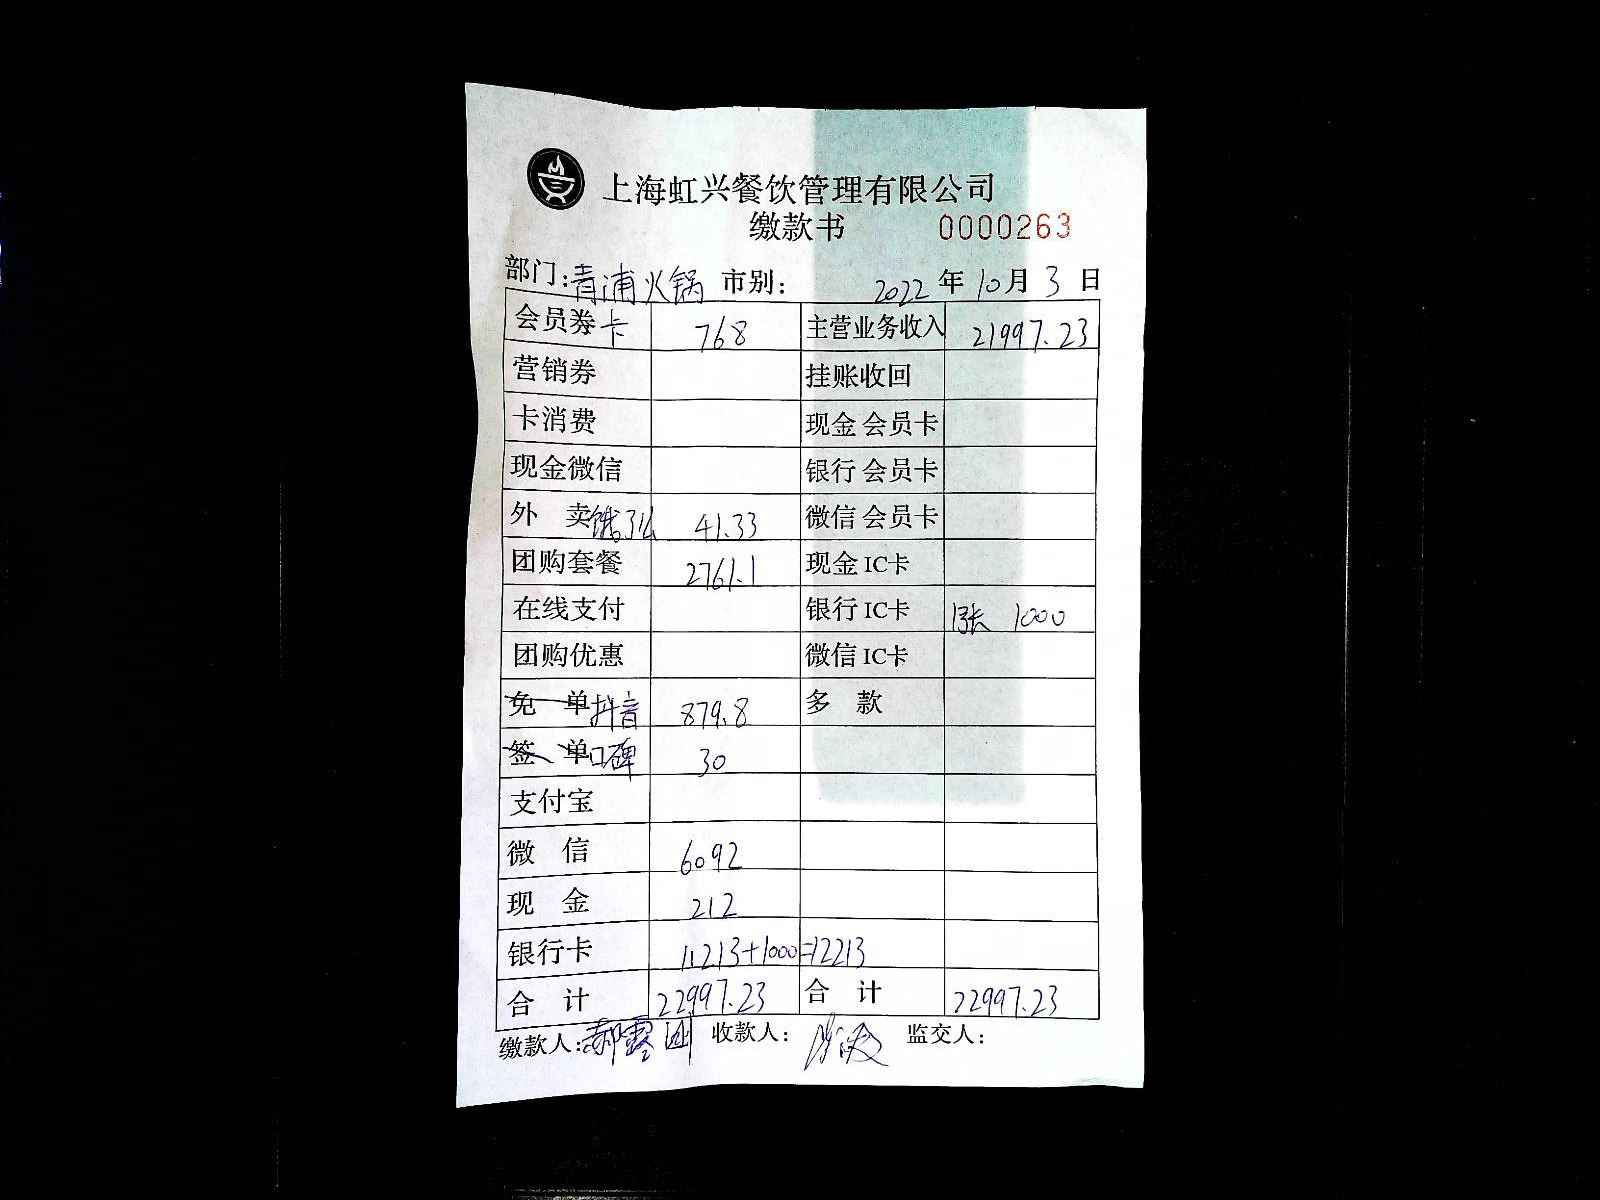 上海虹兴餐饮管理有限公司
缴款书 0000263
部门:青浦火锅 市别: 2022 年 10 月 3 日
会员券卡 768 主营业务收入 21997.23
营销券 挂账收回
卡消费 现金 会员卡
现金微信 银行 会员卡
外 卖饿了么 41.33 微信 会员卡
团购套餐 2761.1 现金 IC卡
在线支付 银行 IC卡 1张 1000
团购优惠 微信 IC卡
免 单抖音 879.8 多 款
签 单口碑 30
支付宝
微 信 6092
现 金 212
银行卡 11213+1000=12213
合 计 22997.23 合 计 22997.23
缴款人: 收款人: 监交人: